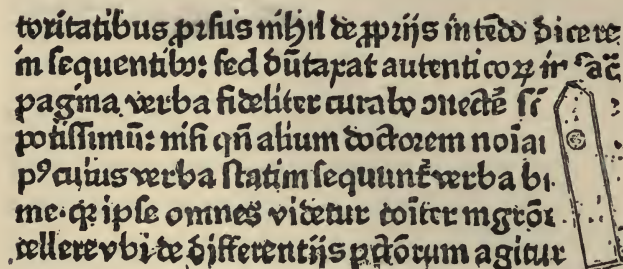 toritatibus ꝓrsus nihil de ꝓprijs intēdo dicere
in sequentibꝰ: sed dūtaxat autenticoꝝ in sac̄
pagina verba fideliter curabo ꝯnectē
potissimū: nisi qn̄ alium doctorem noīaī
pꝰ cuius verba statim sequunt̄ verba
me. ipse omnes videtur cōiter
cellere vbi de differentijs pctōrum agitur